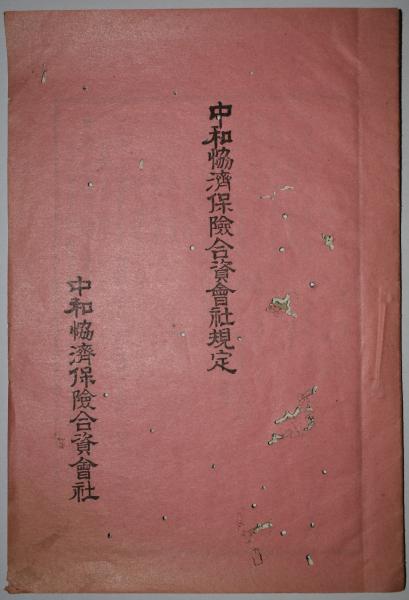 中和恊濟保險合資會社規定
中和恊濟保險合資會社